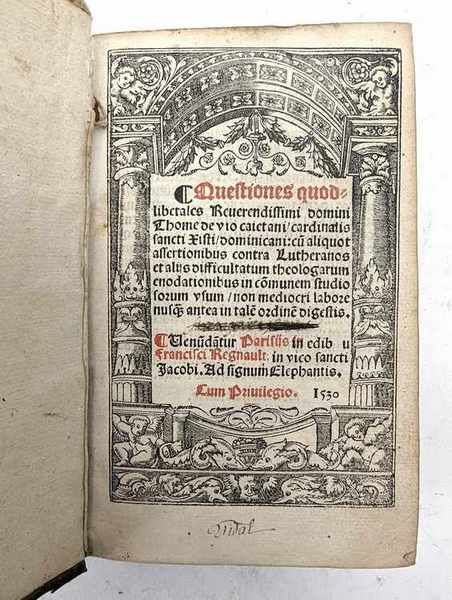 ¶ Questiones quod-
libetales Reuerendissimi domini
Thome de vio caietani/cardinalis
sancti Xisti/dominicani: cū aliquot
assertionibus contra Lutheranos
et aliis difficultatum theologarum
enodationibus in cōmunem studio
sorum vsum/non mediocri labore
nusq̄ antea in talē ordinē digestis.
¶ Venūdātur Parisijs in edib u
Francisci Regnault: in vico sancti
Jacobi. Ad signum Elephantis.
Cum Priuilegio. 1530
Vidal